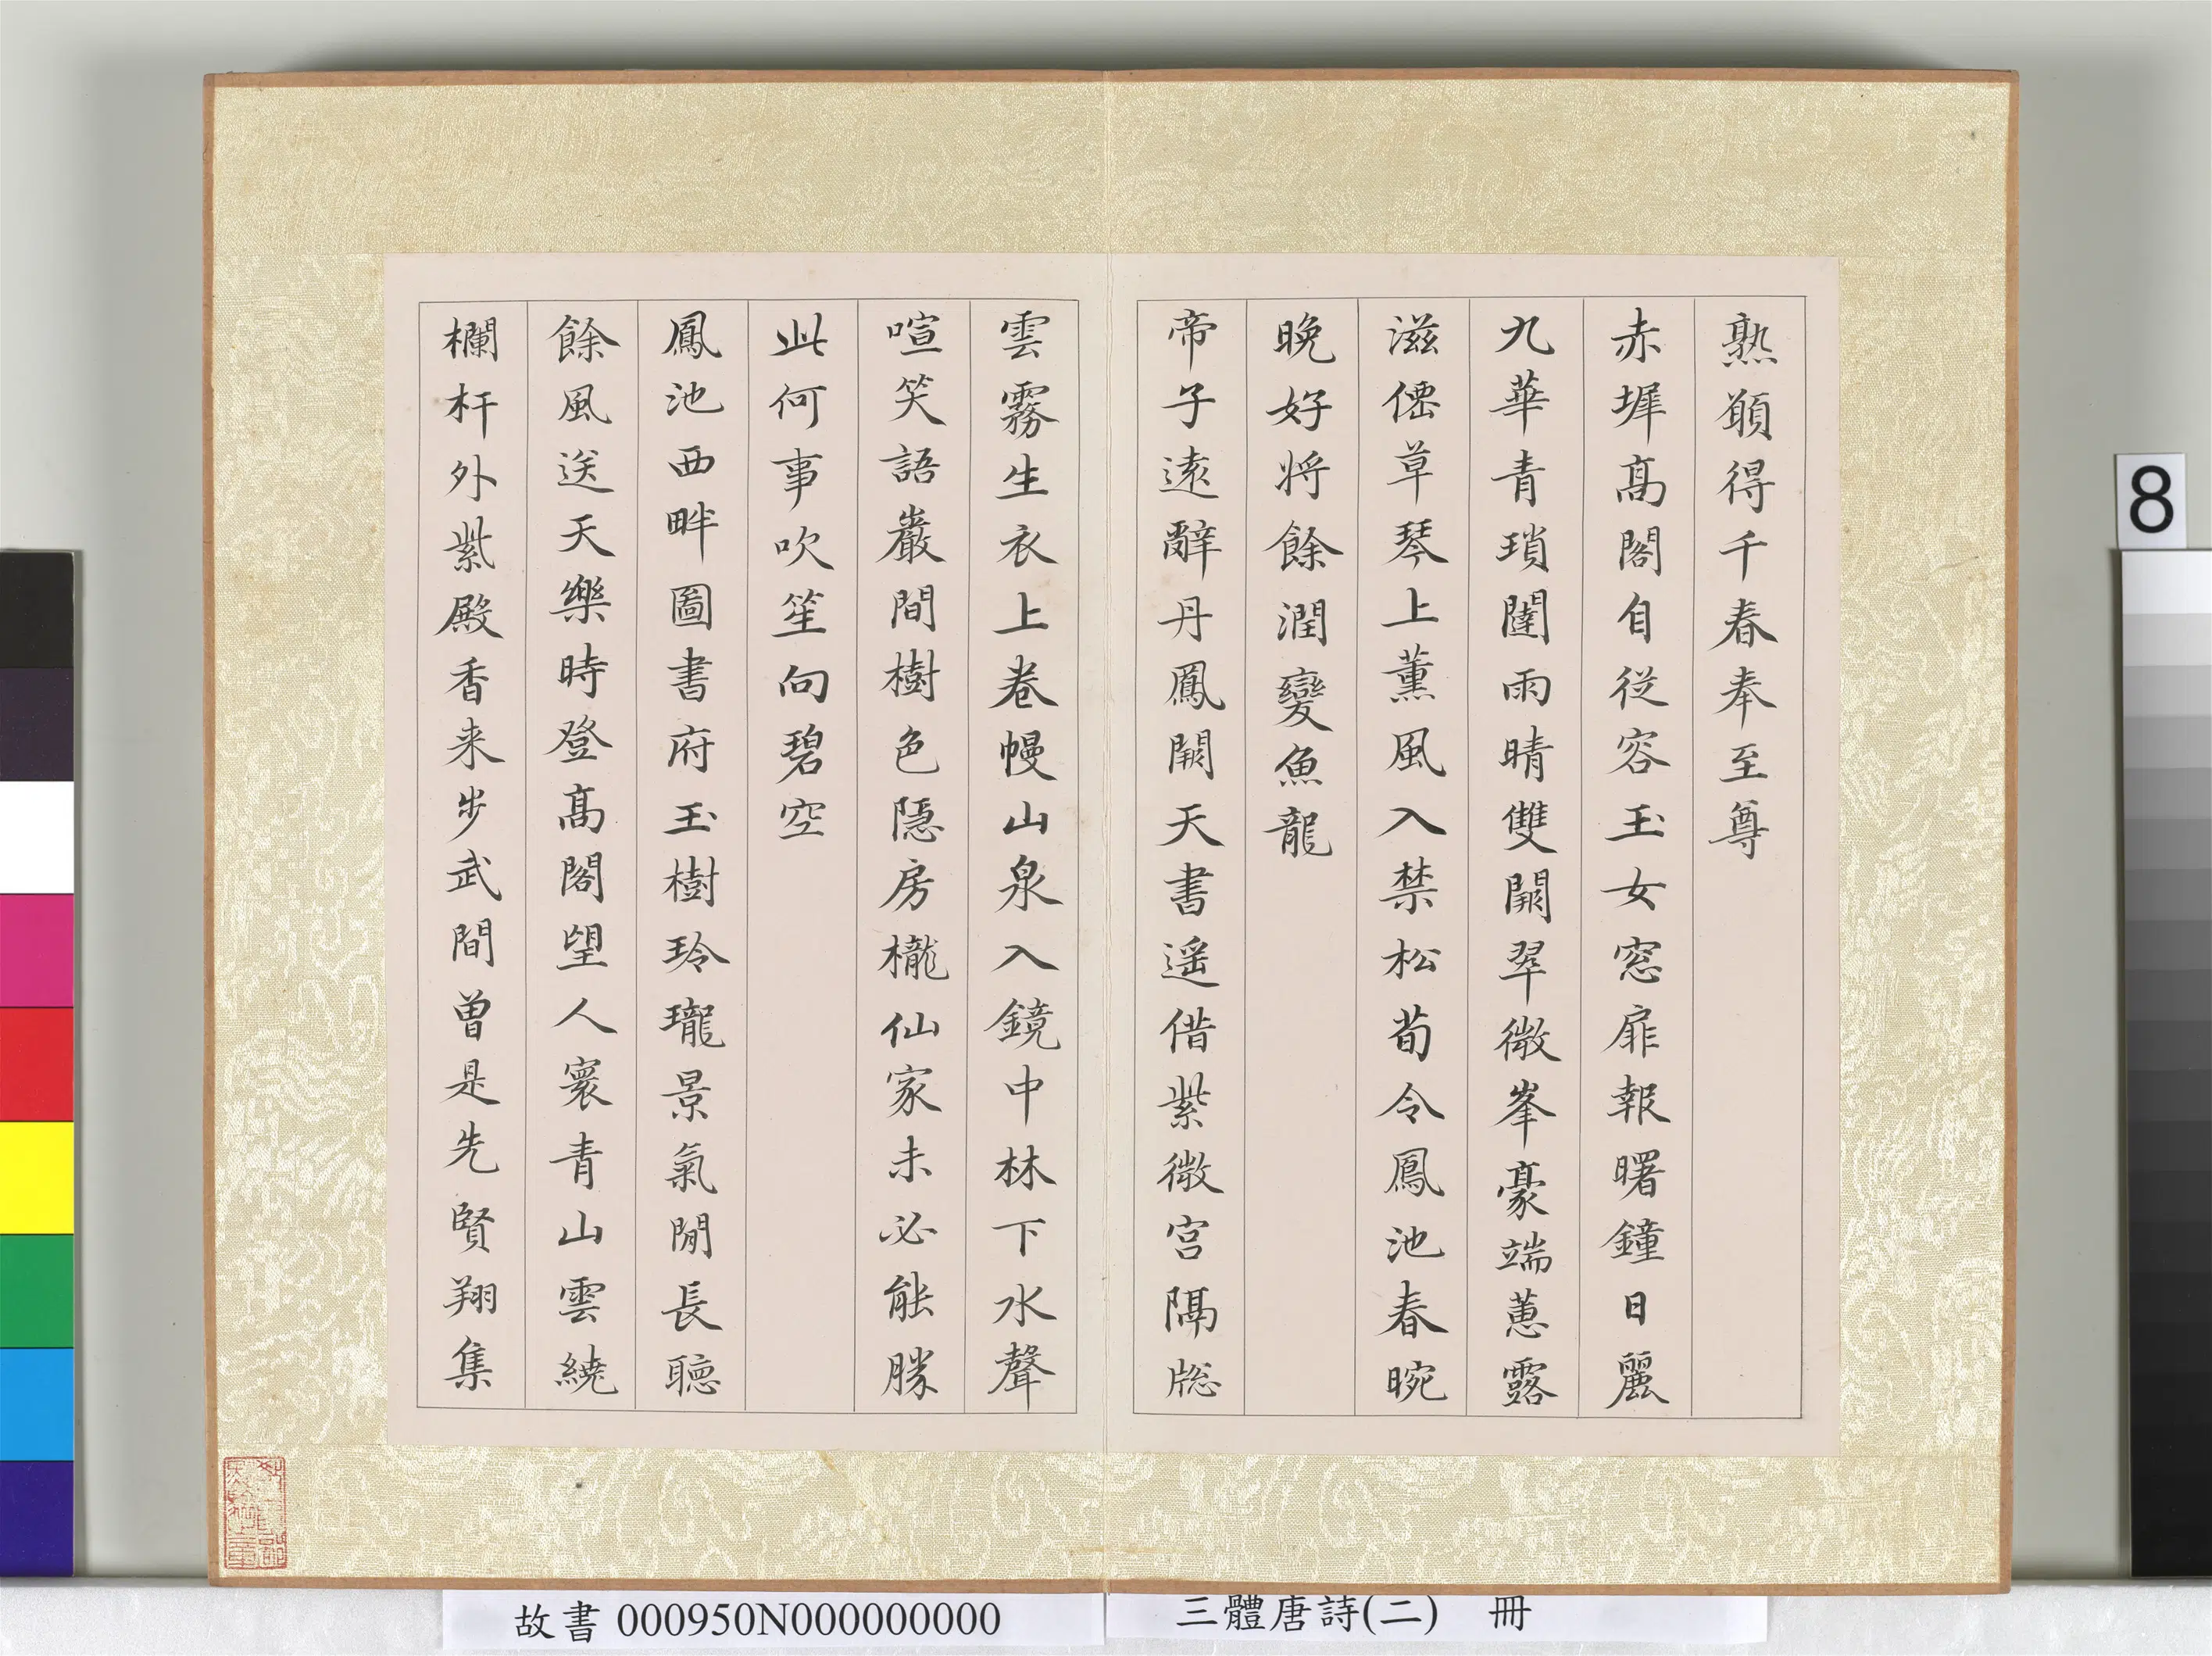 熟願得千春奉至尊
赤墀高閣自從容玉女窓扉報曙鐘日麗
九華青瑣闥雨晴雙闕翠微峯豪端蕙露
滋僊草琴上薰風入禁松荀令鳳池春晼
晚好將餘潤變魚龍
帝子遠辭丹鳳闕天書遥借紫微宮隔牕
雲霧生衣上卷幔山泉入鏡中林下水聲
喧笑語巖間樹色隱房櫳仙家未必能勝
此何事吹笙向碧空
鳳池西畔圖書府玉樹玲瓏景氣閒長聽
餘風送天樂時登高閣望人寰青山雲繞
欄杆外紫殿香来步武間曾是先賢翔集
8
故書 000950N000000000
三體唐詩(二) 冊